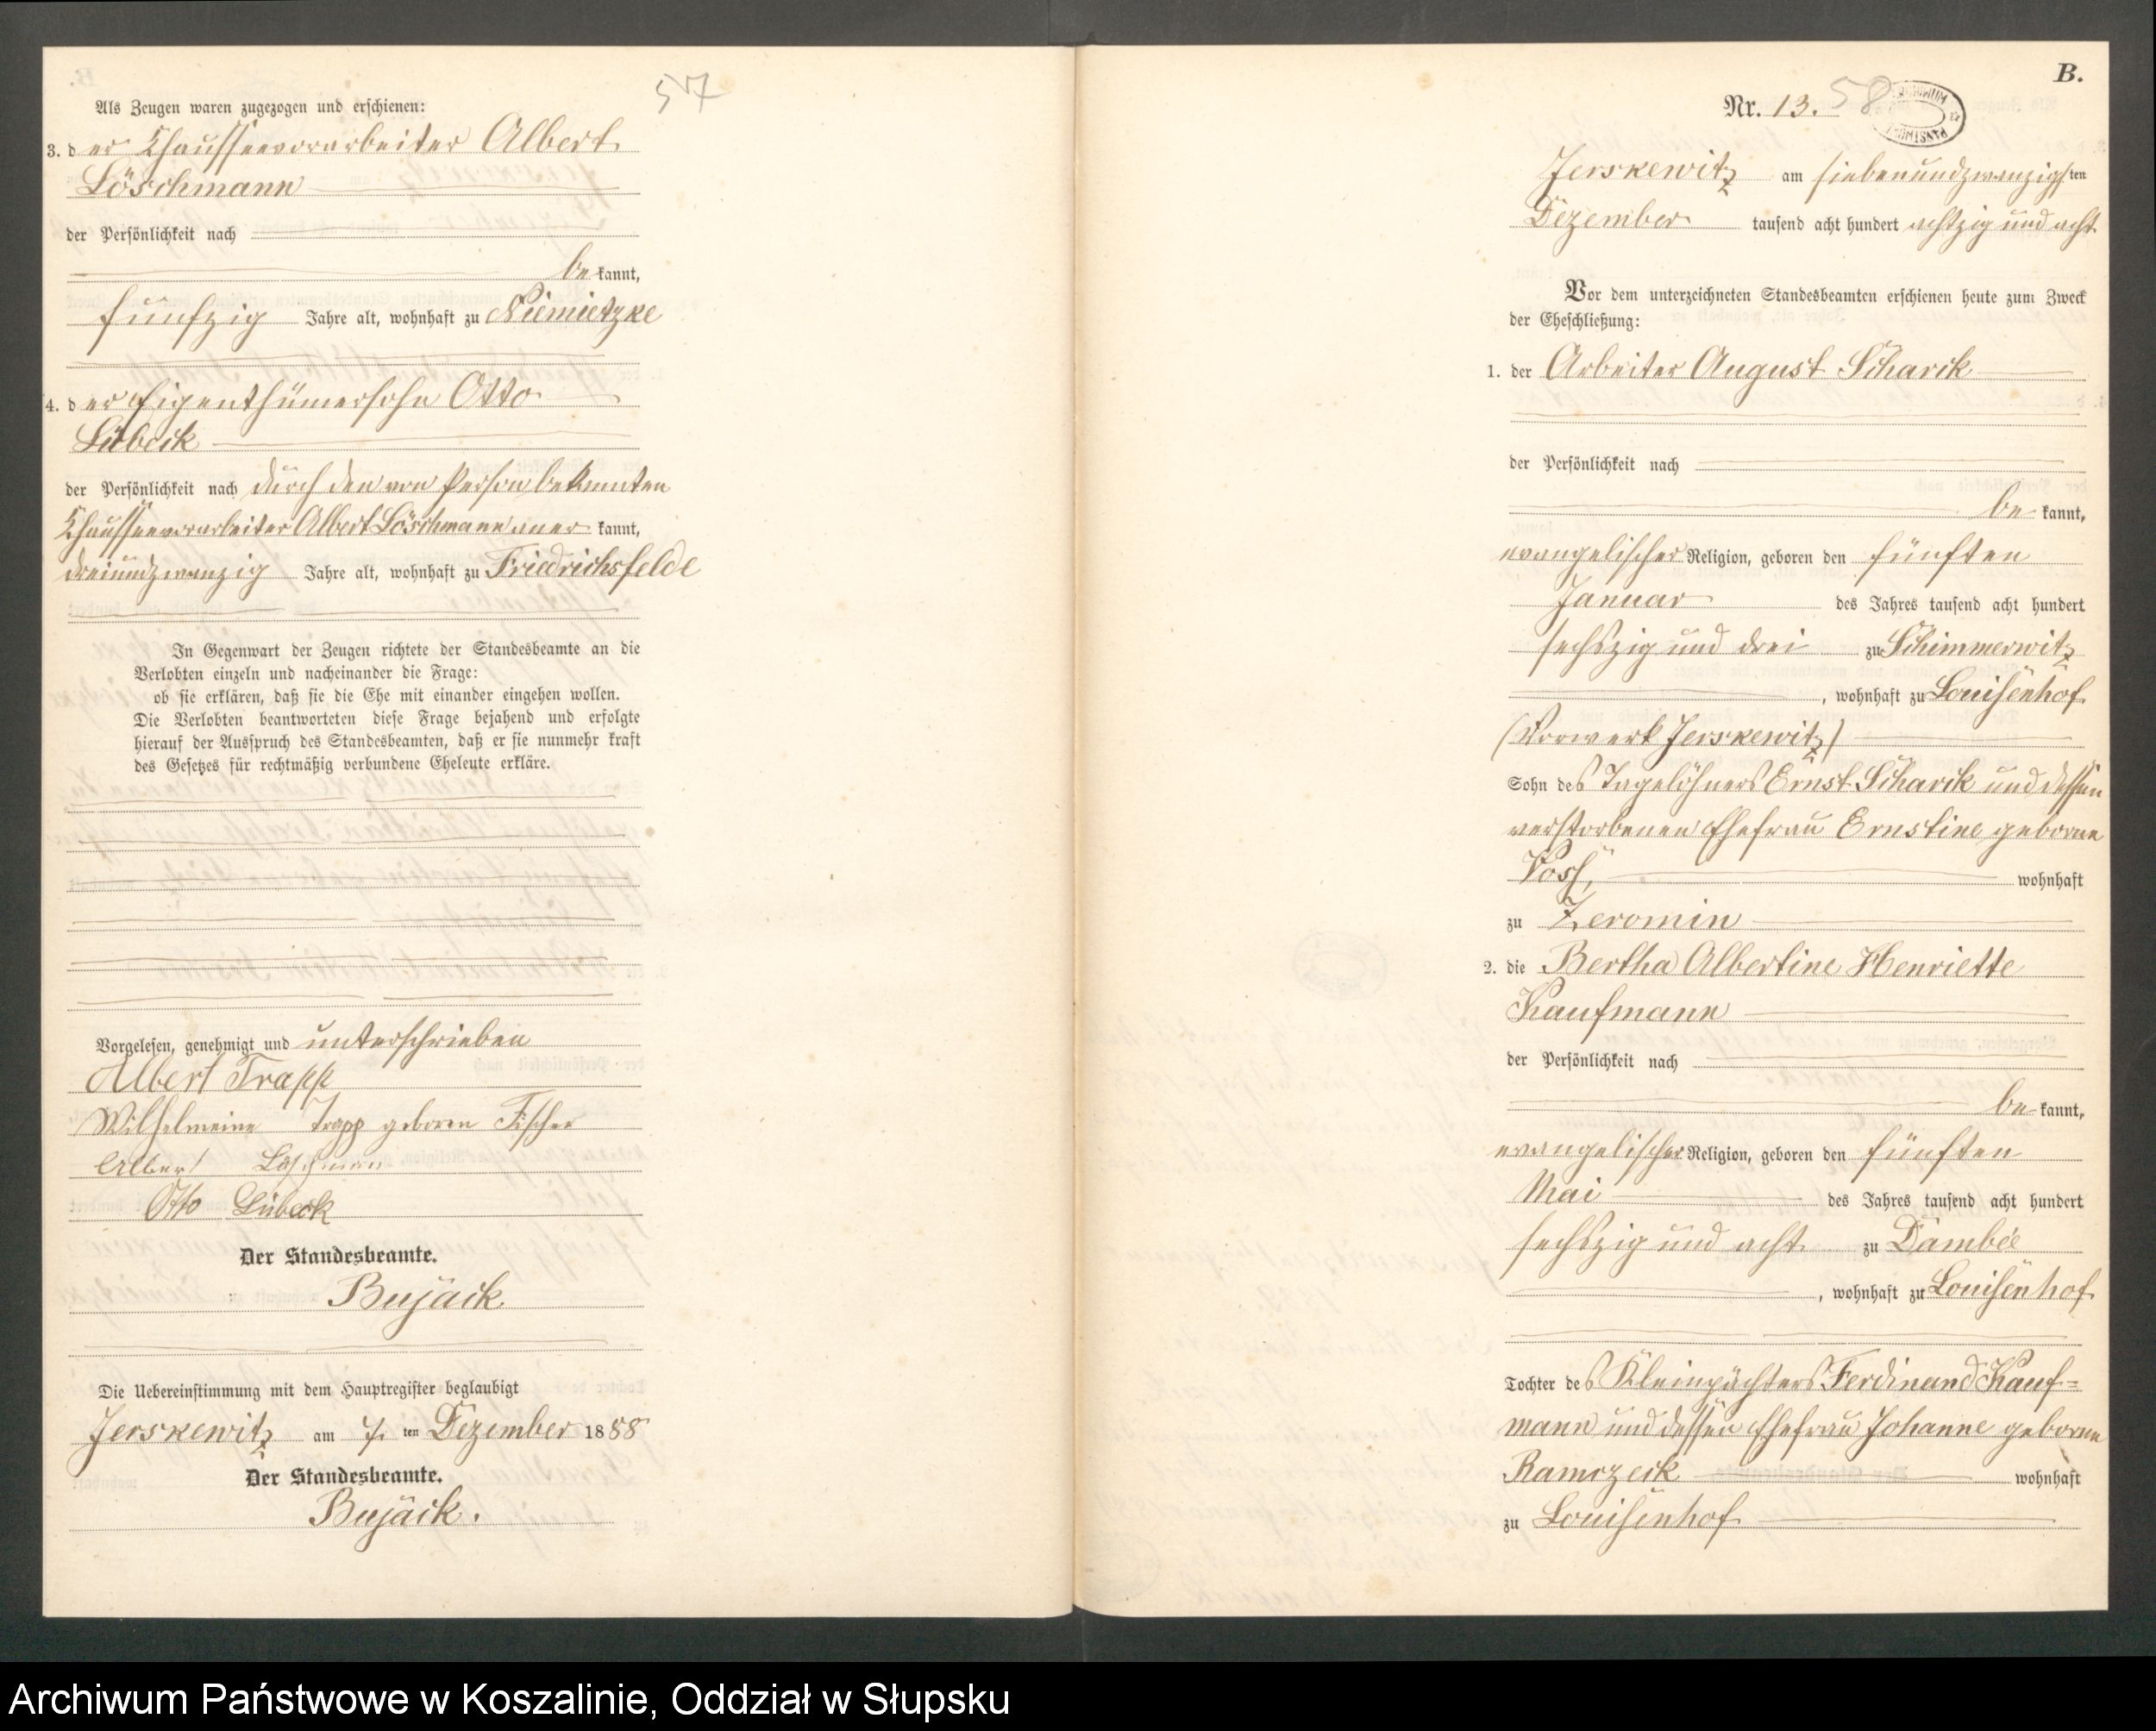 57
Als Zeugen waren zugezogen und erschienen:
3. der Chausseevorarbeiter Albert
Löschmann
der Persönlichkeit nach
bekannt,
fünfzig Jahre alt, wohnhaft zu Niemietzke
4. der Eigenthümersohn Otto
Lübeck
der Persönlichkeit nach durch den von Person bekannten
Chausseevorarbeiter Albert Löschmann anerkannt,
dreiundzwanzig Jahre alt, wohnhaft zu Friedrichsfelde
In Gegenwart der Zeugen richtete der Standesbeamte an die
Verlobten einzeln und nacheinander die Frage:
ob sie erklären, daß sie die Ehe mit einander eingehen wollen.
Die Verlobten beantworteten diese Frage bejahend und erfolgte
hierauf der Ausspruch des Standesbeamten, daß er sie nunmehr kraft
des Gesetzes für rechtmäßig verbundene Eheleute erkläre.
Vorgelesen, genehmigt und unterschrieben
Albert Trapp
Wilhelmeine Trapp geboren Fischer
Albert Löschmann
Otto Lübeck
Der Standesbeamte.
Bujack
Die Uebereinstimmung mit dem Hauptregister beglaubigt
Jerskewitz am 7. ten Dezember 1888
Der Standesbeamte.
Bujack.
B.
Nr. 13. 58
Jerskewitz am siebenundzwanzigsten
Dezember tausend acht hundert achtzig und acht
Vor dem unterzeichneten Standesbeamten erschienen heute zum Zweck
der Eheschließung:
1. der Arbeiter August Scharck
der Persönlichkeit nach
bekannt,
evangelischer Religion, geboren den fünften
Januar des Jahres tausend acht hundert
sechszig und drei zu Schimmerwitz
, wohnhaft zu Louisenhof
(Vorwerk Jerskewitz)
Sohn des Tagelöhners Ernst Scharck und dessen
verstorbenen Ehefrau Ernstine geborne
Vosh, wohnhaft
zu Zeromin
2. die Bertha Albertine Henriette
Kaufmann
der Persönlichkeit nach
bekannt,
evangelischer Religion, geboren den fünften
Mai des Jahres tausend acht hundert
sechszig und acht zu Dambee
, wohnhaft zu Louisenhof
Tochter des Kleinpächters Ferdinand Kauf=
mann und dessen Ehefrau Johanne geborne
Ramczeck wohnhaft
zu Louisenhof
Archiwum Państwowe w Koszalinie, Oddział w Słupsku